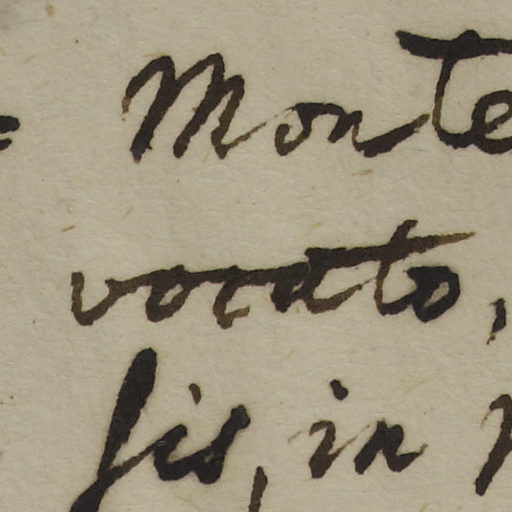 = Monte
vocato,
sis, in